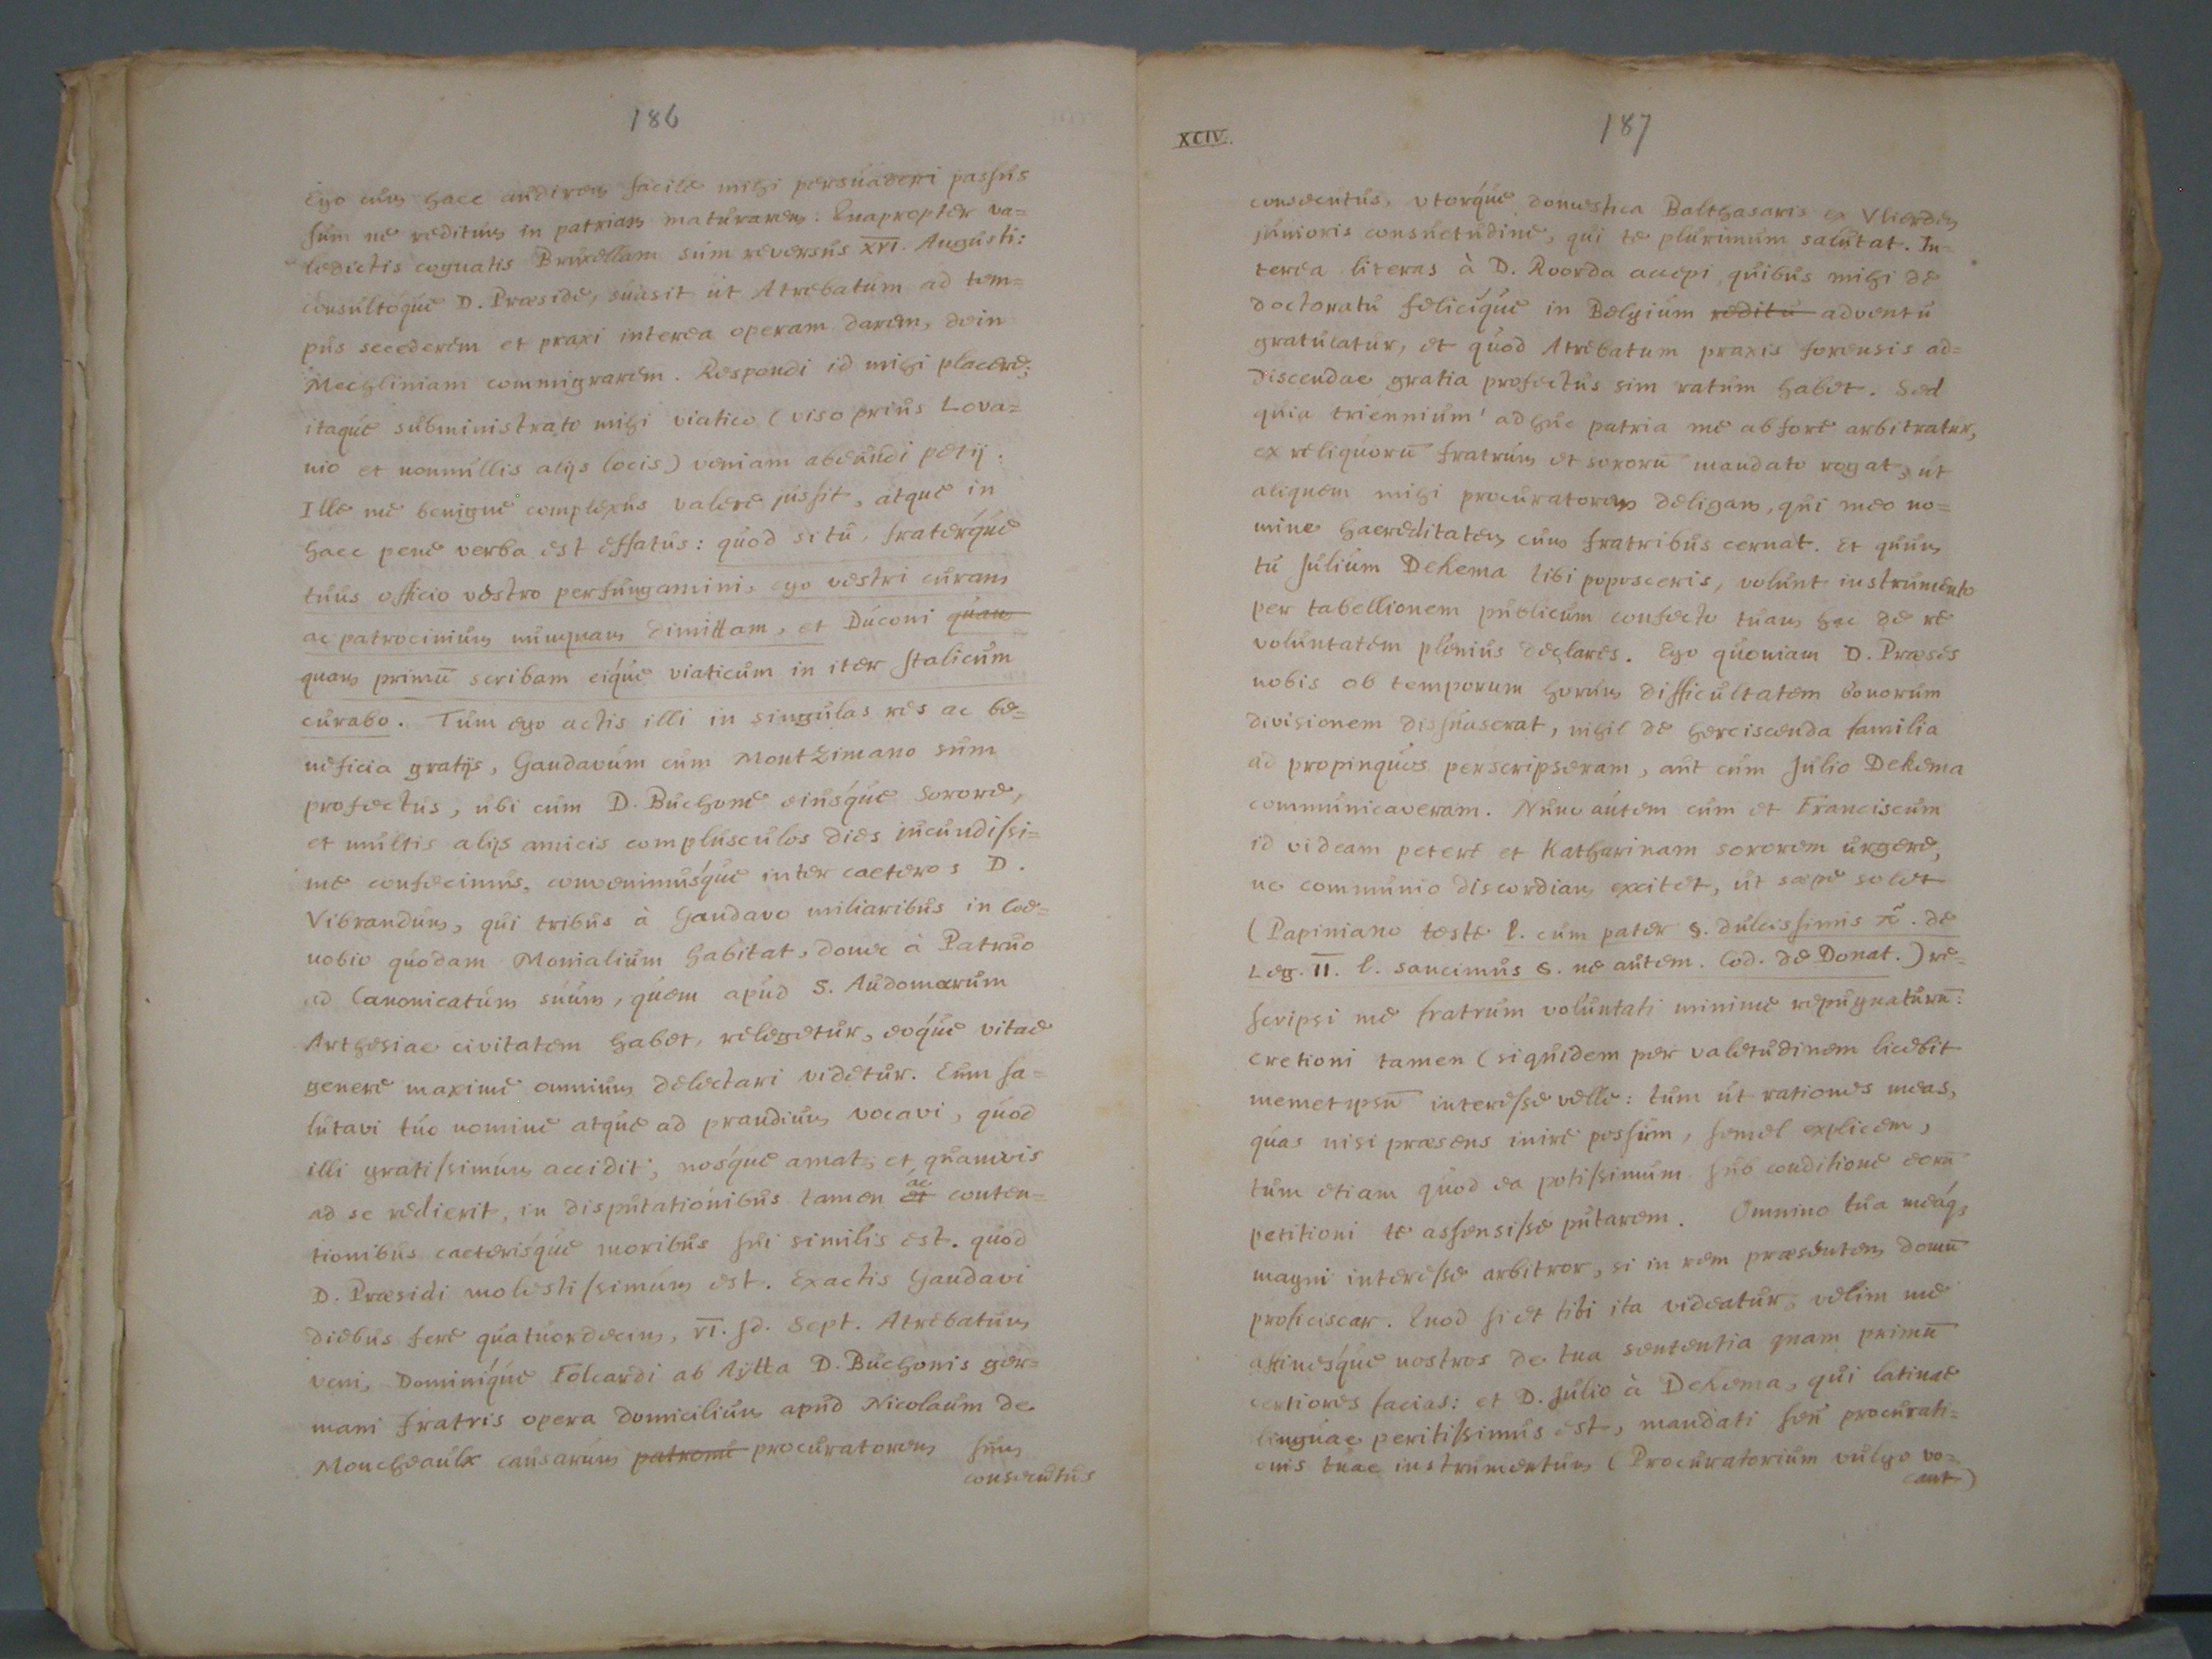 186
Ego cùm haec audirem facilè mihi persuaderi passus
sum ne reditum in patriam maturarem: Quapropter va=
ledictis cognatis Bruxellam sum reversus XVI. Augusti:
consultoque D. Praeside, suasit ut Atrebatum ad tem=
pus secederem et praxi interea operam darem, dein
Mechliniam commigrarem. Respondi id mihi placere;
itaque subministrato mihi viatico (viso prius Lova=
nio et nonnullis alijs locis) veniam abeundi petij.
Ille me benigne complexus valere jussit, atque in
haec pene verba est effatus: quod si tu, fraterque
tuus officio vestro perfungamini, ego vestri curam
ac patrocinium numquam dimittam, et Duconi quam
quam primū scribam eique viaticum in iter Italicum
curabo. Tum ego actis illi in singulas res ac be=
neficia gratijs, Gandavum cum Montzimano sum
profectus, ubi cum D. Buchone eiusque sorore,
et multis alijs amicis complusculos dies jucundissi=
me confecimus, convenimusque inter caeteros D.
Vibrandum, qui tribus à Gandavo miliaribus in Coe=
nobio quodam Monialium habitat, donec à Patruo
ad Canonicatum suum, quem apud S. Audomarum
Arthesiae civitatem habet, relegetur, eoque vitae
genere maxime omnium delectari videtur. Eum sa=
lutavi tuo nomine atque ad prandium vocavi, quod
illi gratissimum accidit; nosque amat, et quamvis
ad se redierit, in disputationibus tamen et ac conten=
tionibus caeterisque moribus sui similis est. quod
D. Praesidi molestissimum est. Exactis Gandavi
diebus fere quatuordecim, VI. Id. Sept. Atrebatum
veni, Dominique Folcardi ab Aytta D. Buchonis ger=
mani fratris opera domicilium apud Nicolaum de
Moncheaulx causarum patronū procuratorem sum
consecutus
XCIV.
187
consecutus, utorque domestica Balthasaris ex Vlierden
junioris consuetudine, qui te plurimum salutat. In=
terea literas à D. Roorda accepi quibus mihi de
doctoratu felicique in Belgium reditu adventu
gratulatur, et quod Atrebatum praxis forensis ad=
discendae gratia profectus sim ratum habet. Sed
quia triennium adhuc patria me abfore arbitratur,
ex reliquorū fratrum et sororū mandato rogat, ut
aliquem mihi procuratorem deligam, qui meo no=
mine haereditatem cum fratribus cernat. Et quum
tu Julium Dekema tibi poposceris, volunt instrumento
per tabellionem publicum confecto tuam hac de re
voluntatem plenius declares. Ego quoniam D. Praeses
nobis ob temporum horum difficultatem bonorum
divisionem dissuaserat, nihil de herciscenda familia
ad propinquos perscripseram, aut cum Julio Dekema
communicaveram. Nunc autem cum et Franciscum
id videam petere et Katharinam sororem urgere,
ne communio discordiam excitet, ut saepe solet
(Papiniano teste l. cum pater §. dulcissimis π̃. de
Leg. II. l. sancimus §. ne autem. Cod. de Donat.) re=
scripsi me fratrum voluntati minime repugnaturū:
cretioni tamen (siquidem per valetudinem licebit
memet ipsū interesse velle: tum ut rationes meas,
quas nisi praesens inire possum, semel explicem,
tum etiam quod ea potissimum sub conditione eorū
petitioni te assensisse putarem. Omnino tua meaq;
magni interesse arbitror, si in rem praesentem domū
proficiscar. Quod si et tibi ita videatur, velim me
affinesque nostros de tua sententia quam primū
certiores facias: et D. Julio à Dekema, qui latinae
linguae peritissimus est, mandati seu procurati=
onis tuae instrumentum (Procuratorium vulgo vo=
cant)